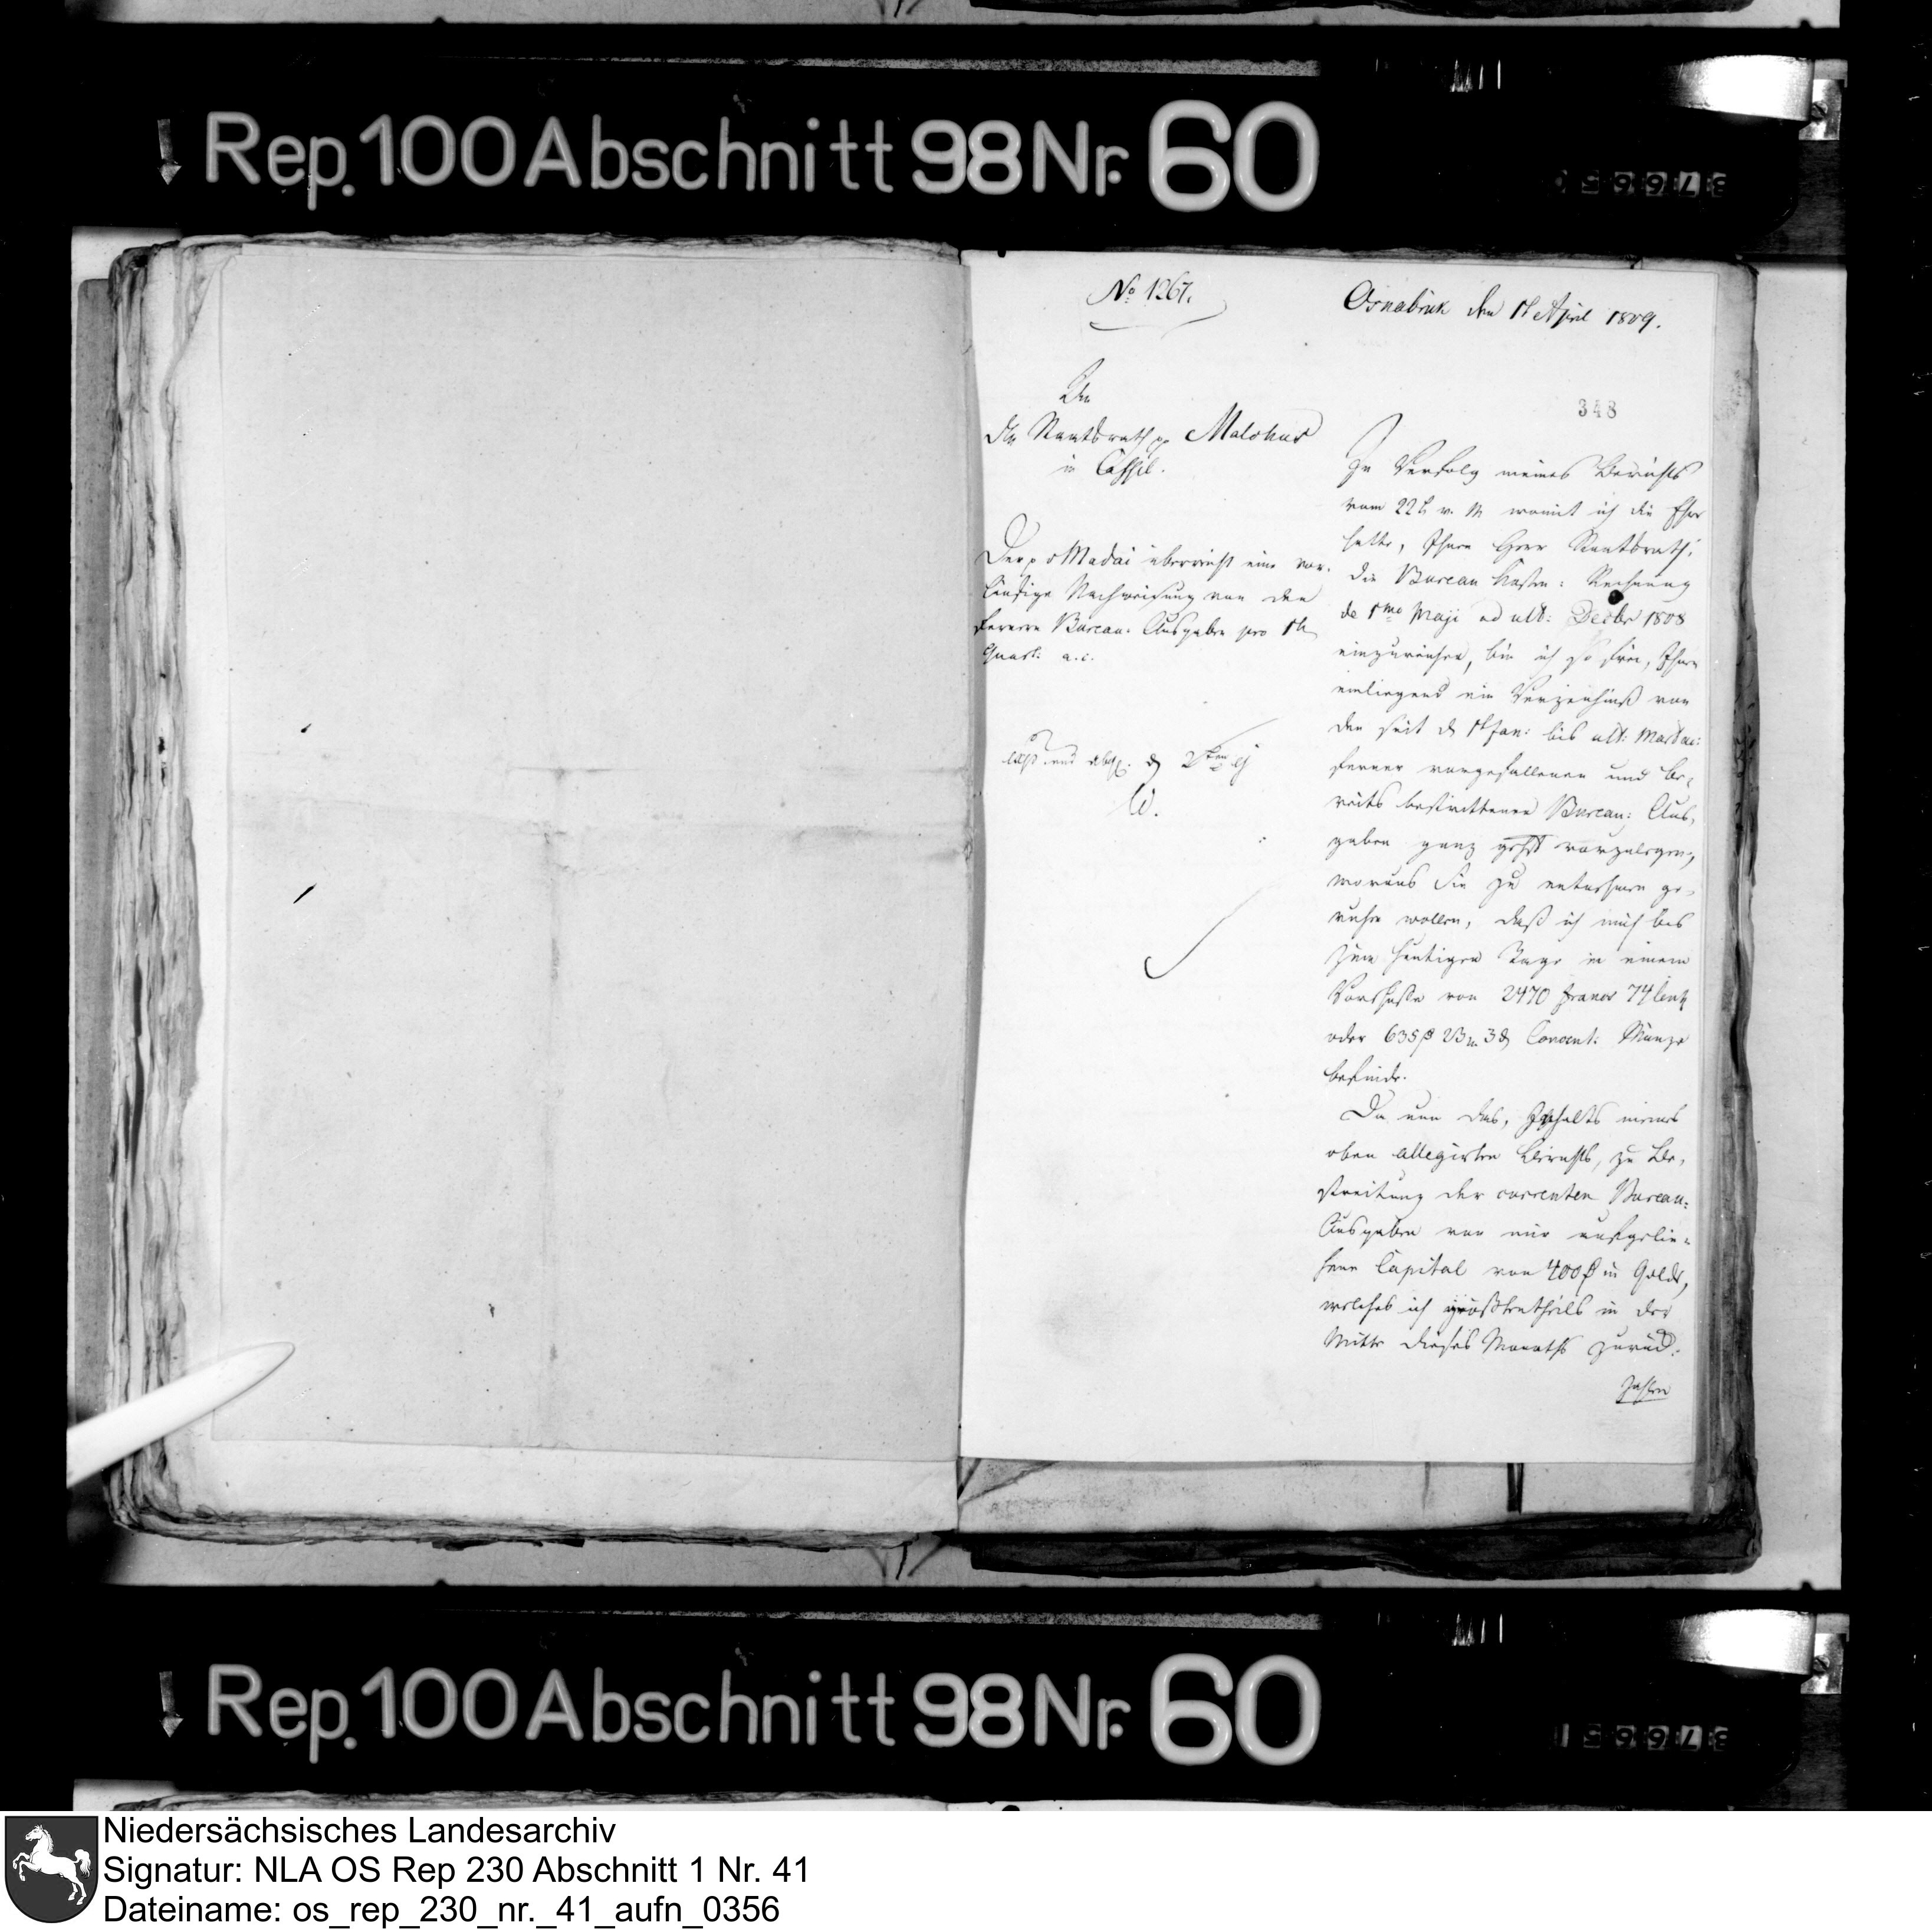 Rep. 100 Abschnitt 98 Nr. 60
No 1267.
Osnabrück den 1t April 1809.
348
An
den Staatsrath p. Malchus
in Cassel.
Der p v Madai überreicht eine vor-
läufige Nachweisung von den
ferneren Bureau-Ausgaben pro 1t
Quart: a. c.
In Verfolg meines Berichts
vom 22t v. M womit ich die Ehre
hatte, Ihnen Herr Staatsrath!
die Bureau Kosten-Rechnung
de 1mo Maji ad ult: Decbr 1808
einzureichen, bin ich so frei, Ihnen
einliegend ein Verzeichniß von
den seit d 1t Jan: bis ult: Mart a c:
ferner vorgefallenen und be-
reits bestrittenen Bureau-Aus-
gaben ganz gehst vorzulegen,
woraus Sie zu entnehmen ge-
ruhen wollen, daß ich mich bis
zum heutigen Tage in einem
Vorschusse von 2470 francs 74 Cent
oder 635 23 3 Convent: Münze
befinde.
Da nun das, Inhalts meines
oben allegirten Berichts, zu Be-
streitung der currenten Bureau-
Ausgaben von mir aufgelie-
hene Capital von 400 in Golde,
welches ich größtentheils in der
Mitte dieses Monaths zurück-
zahlen
Rep. 100 Abschnitt 98 Nr. 60
Niedersächsisches Landesarchiv
Signatur: NLA OS Rep 230 Abschnitt 1 Nr. 41
Dateiname: os_rep_230_nr._41_aufn_0356